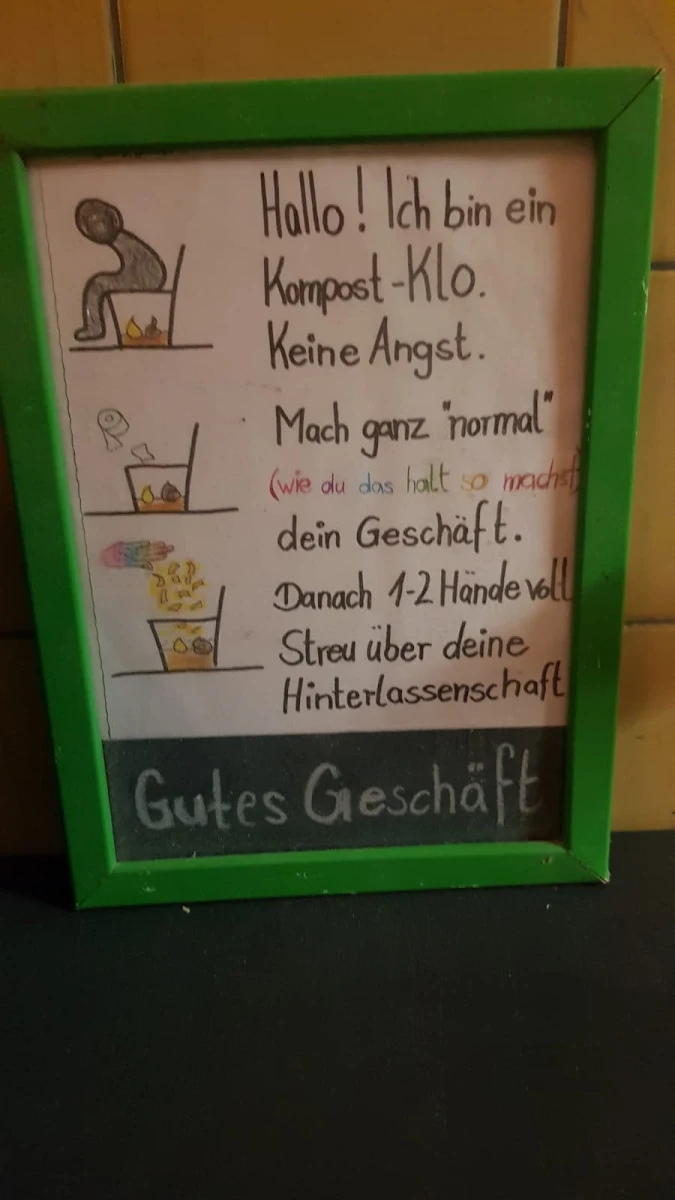 Hallo! Ich bin ein
Kompost-Klo.
Keine Angst.
Mach ganz "normal"
(wie du das halt so machst)
dein Geschäft.
Danach 1-2 Hände voll
Streu über deine
Hinterlassenschaft
Gutes Geschäft